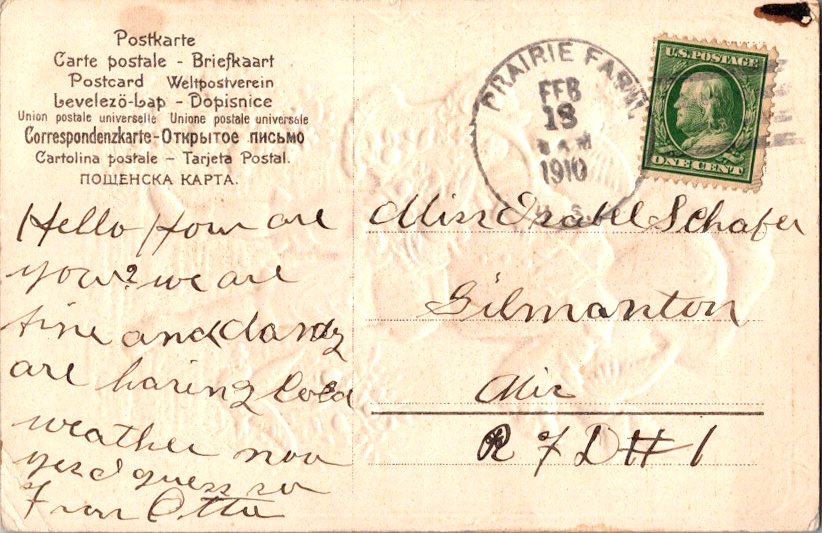 Postkarte
Carte postale - Briefkaart
Postcard Weltpostverein
Levelező-Lap - Dopisnice
Union postale universelle Unione postale universale
Correspondenzkarte-Открытое письмо
Cartolina postale - Tarjeta Postal.
ПОШЕНСКА КАРТА.
PRAIRIE FARM,
FEB
18
A M
1910
U.S. POSTAGE
ONE CENT
Hello How are
you? we are
fine and dandy
are having cold
weather now
yes I guess so
From Otto
Miss Isabel Schafer
Gilmanton
Wis
R F D # 1